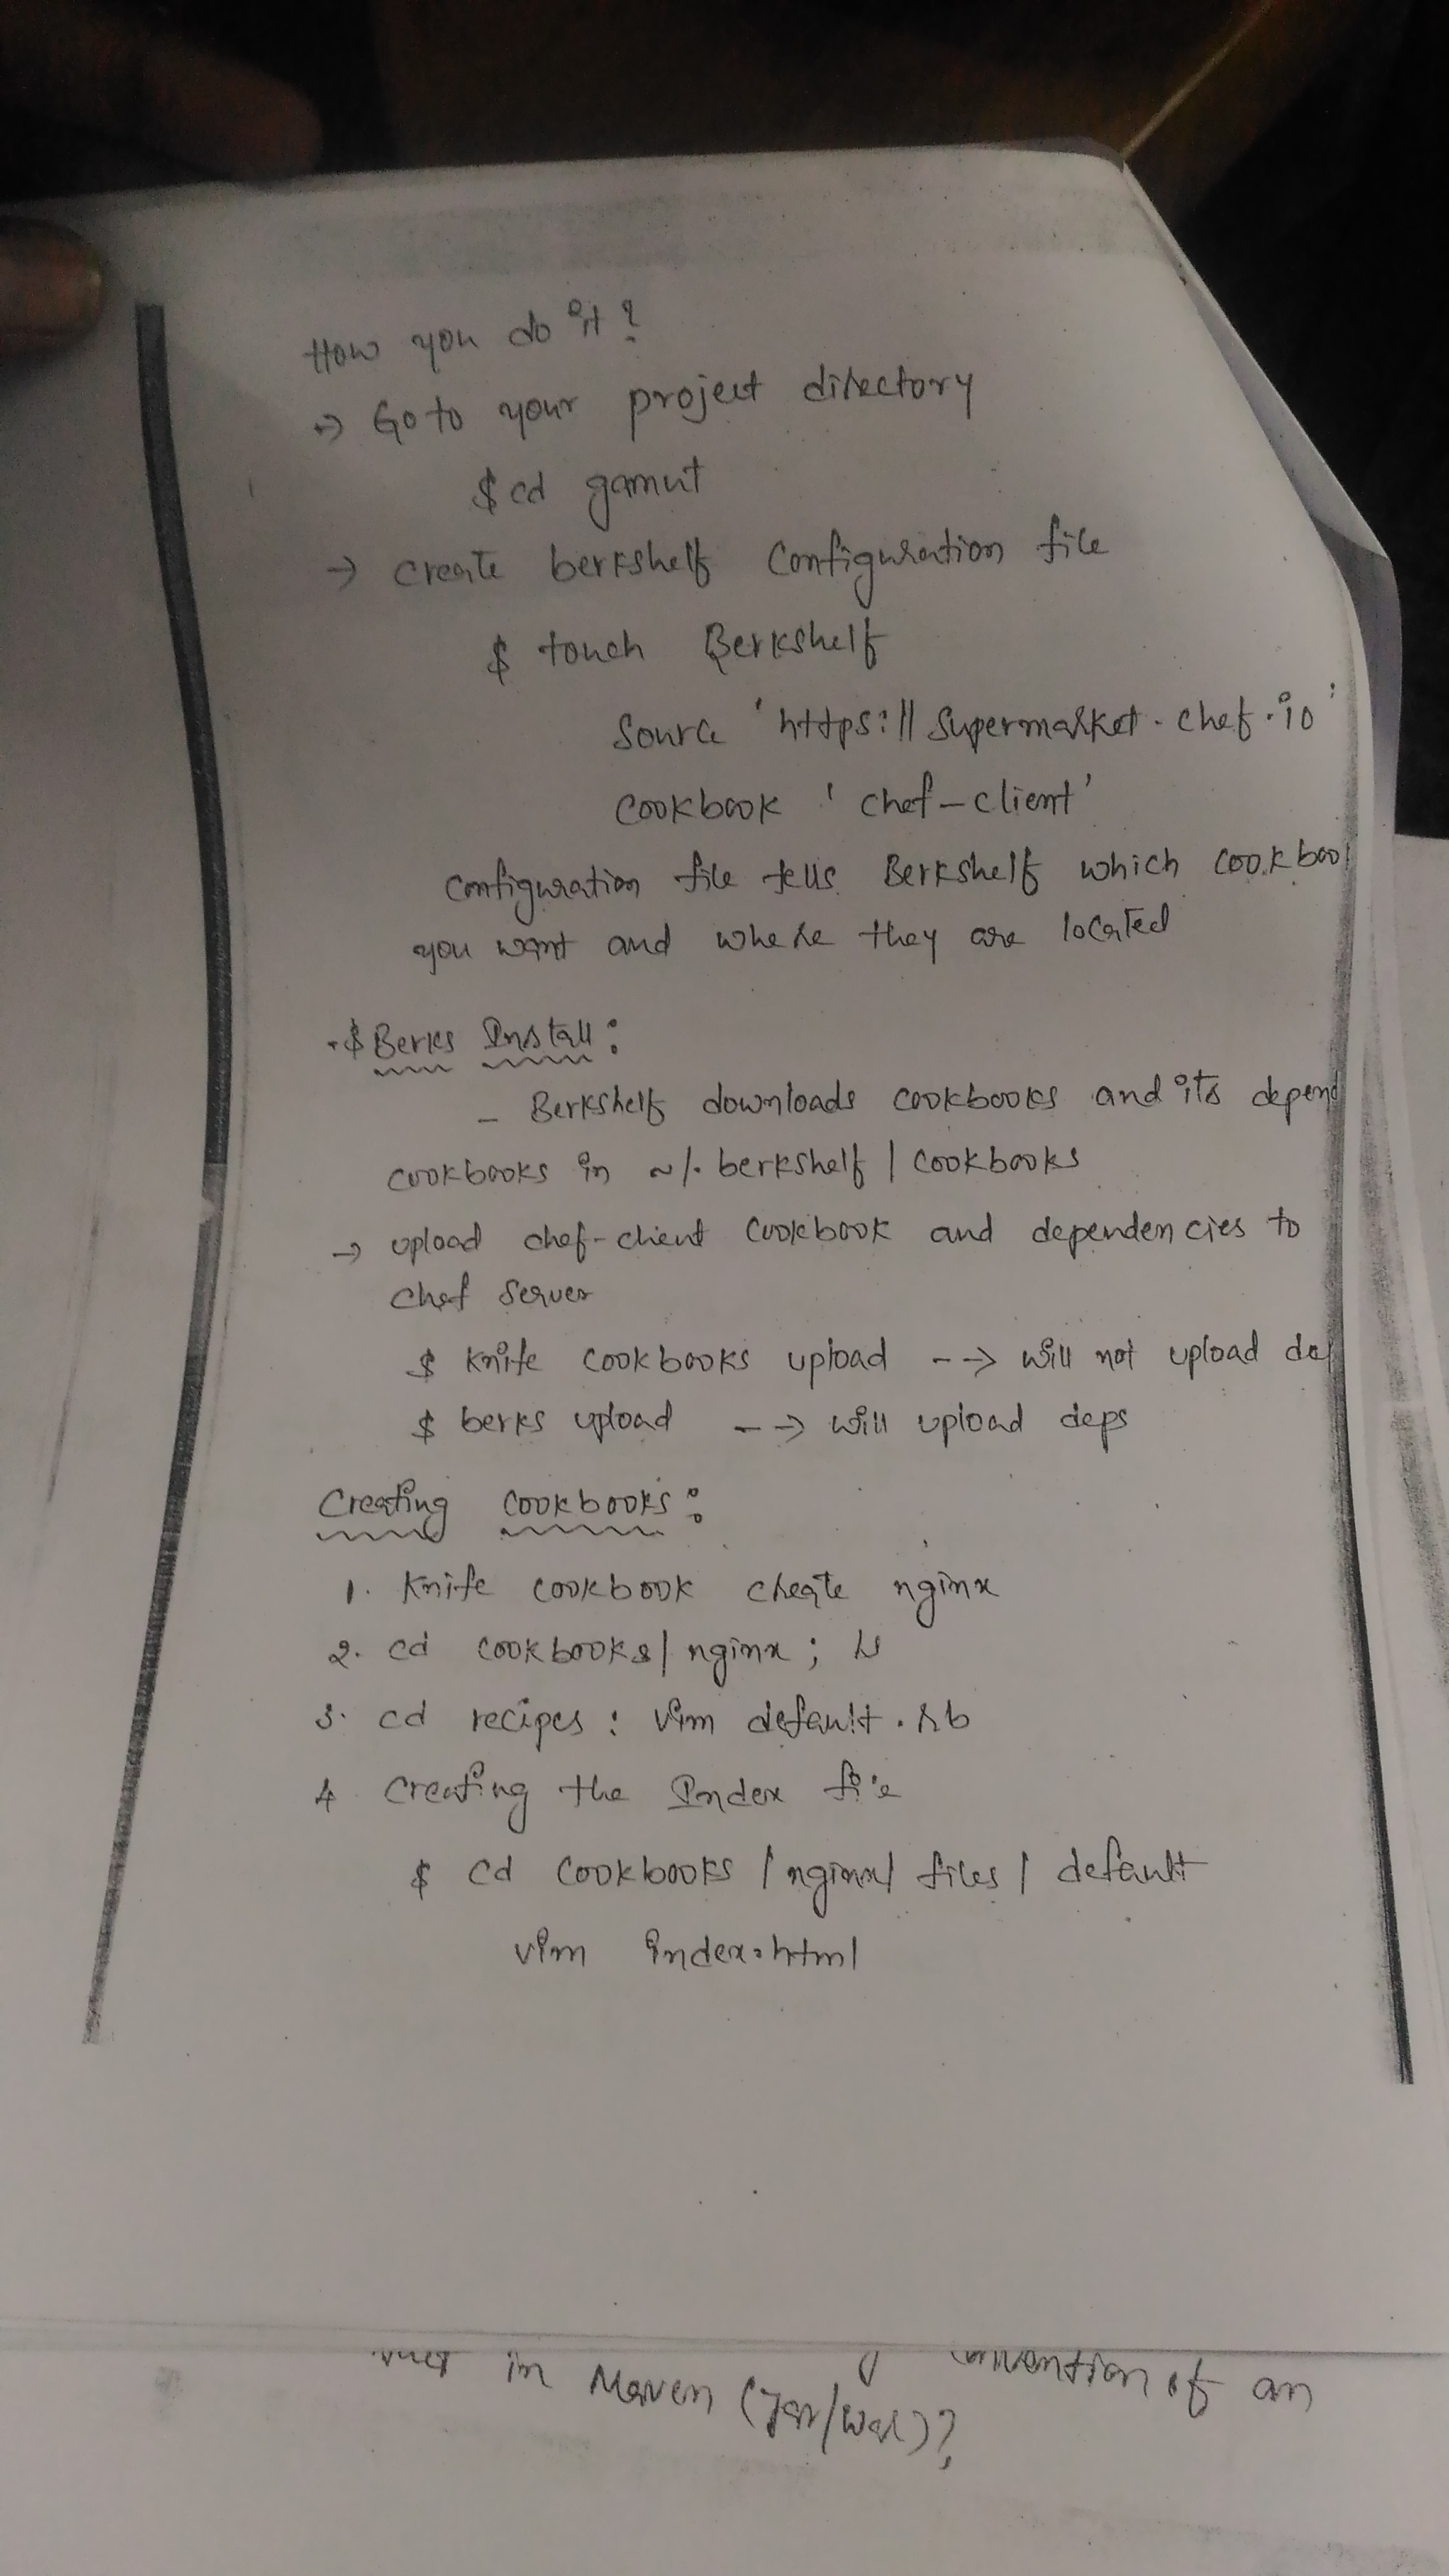 How you do it?
→ Go to your project directory
$ cd gamut
→ create berkshelf configuration file
$ touch Berkshelf
Source 'https://supermarket.chef.io'
cookbook 'chef-client'
configuration file tells Berkshelf which cookboo
you want and where they are located
$ Berks Install:
- Berkshelf downloads cookbooks and its depend
cookbooks in ~/.berkshelf/cookbooks
→ upload chef-client cookbook and dependencies to
chef server
$ knife cookbooks upload --> will not upload de
$ berks upload --> will upload deps
Creating cookbooks:
1. Knife cookbook create nginx
2. cd cookbooks/nginx; ls
3. cd recipes: vim default.rb
4. Creating the Index file
$ cd cookbooks/nginx/files/default
vim index.html
in Maven (Jar/War)?
of an